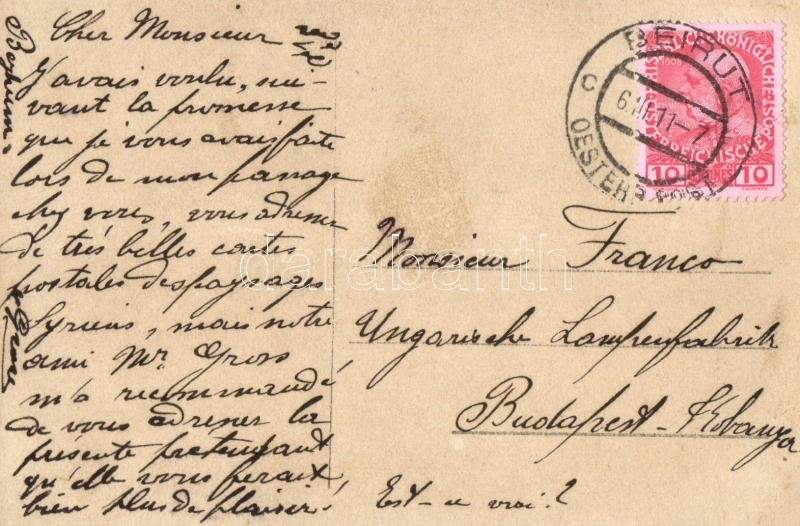 Cher Monsieur
J'avais voulu, sui-
vant la promesse
que je vous avais faite
lors de mon passage
chez vous, vous adresser
de très belles cartes
postales des paysages
Syriens, mais notre
ami Mr. Gross
m'a recommandé
de vous adresser la
présente prétendant
qu'elle vous ferait
bien plus de plaisir.
Est-ce vrai?
Monsieur Franco
Ungarische Lampenfabrik
Budapest-Kőbanya
BEIRUT
6.III.11-7
C
OESTERR. POST
10 10
darabanth